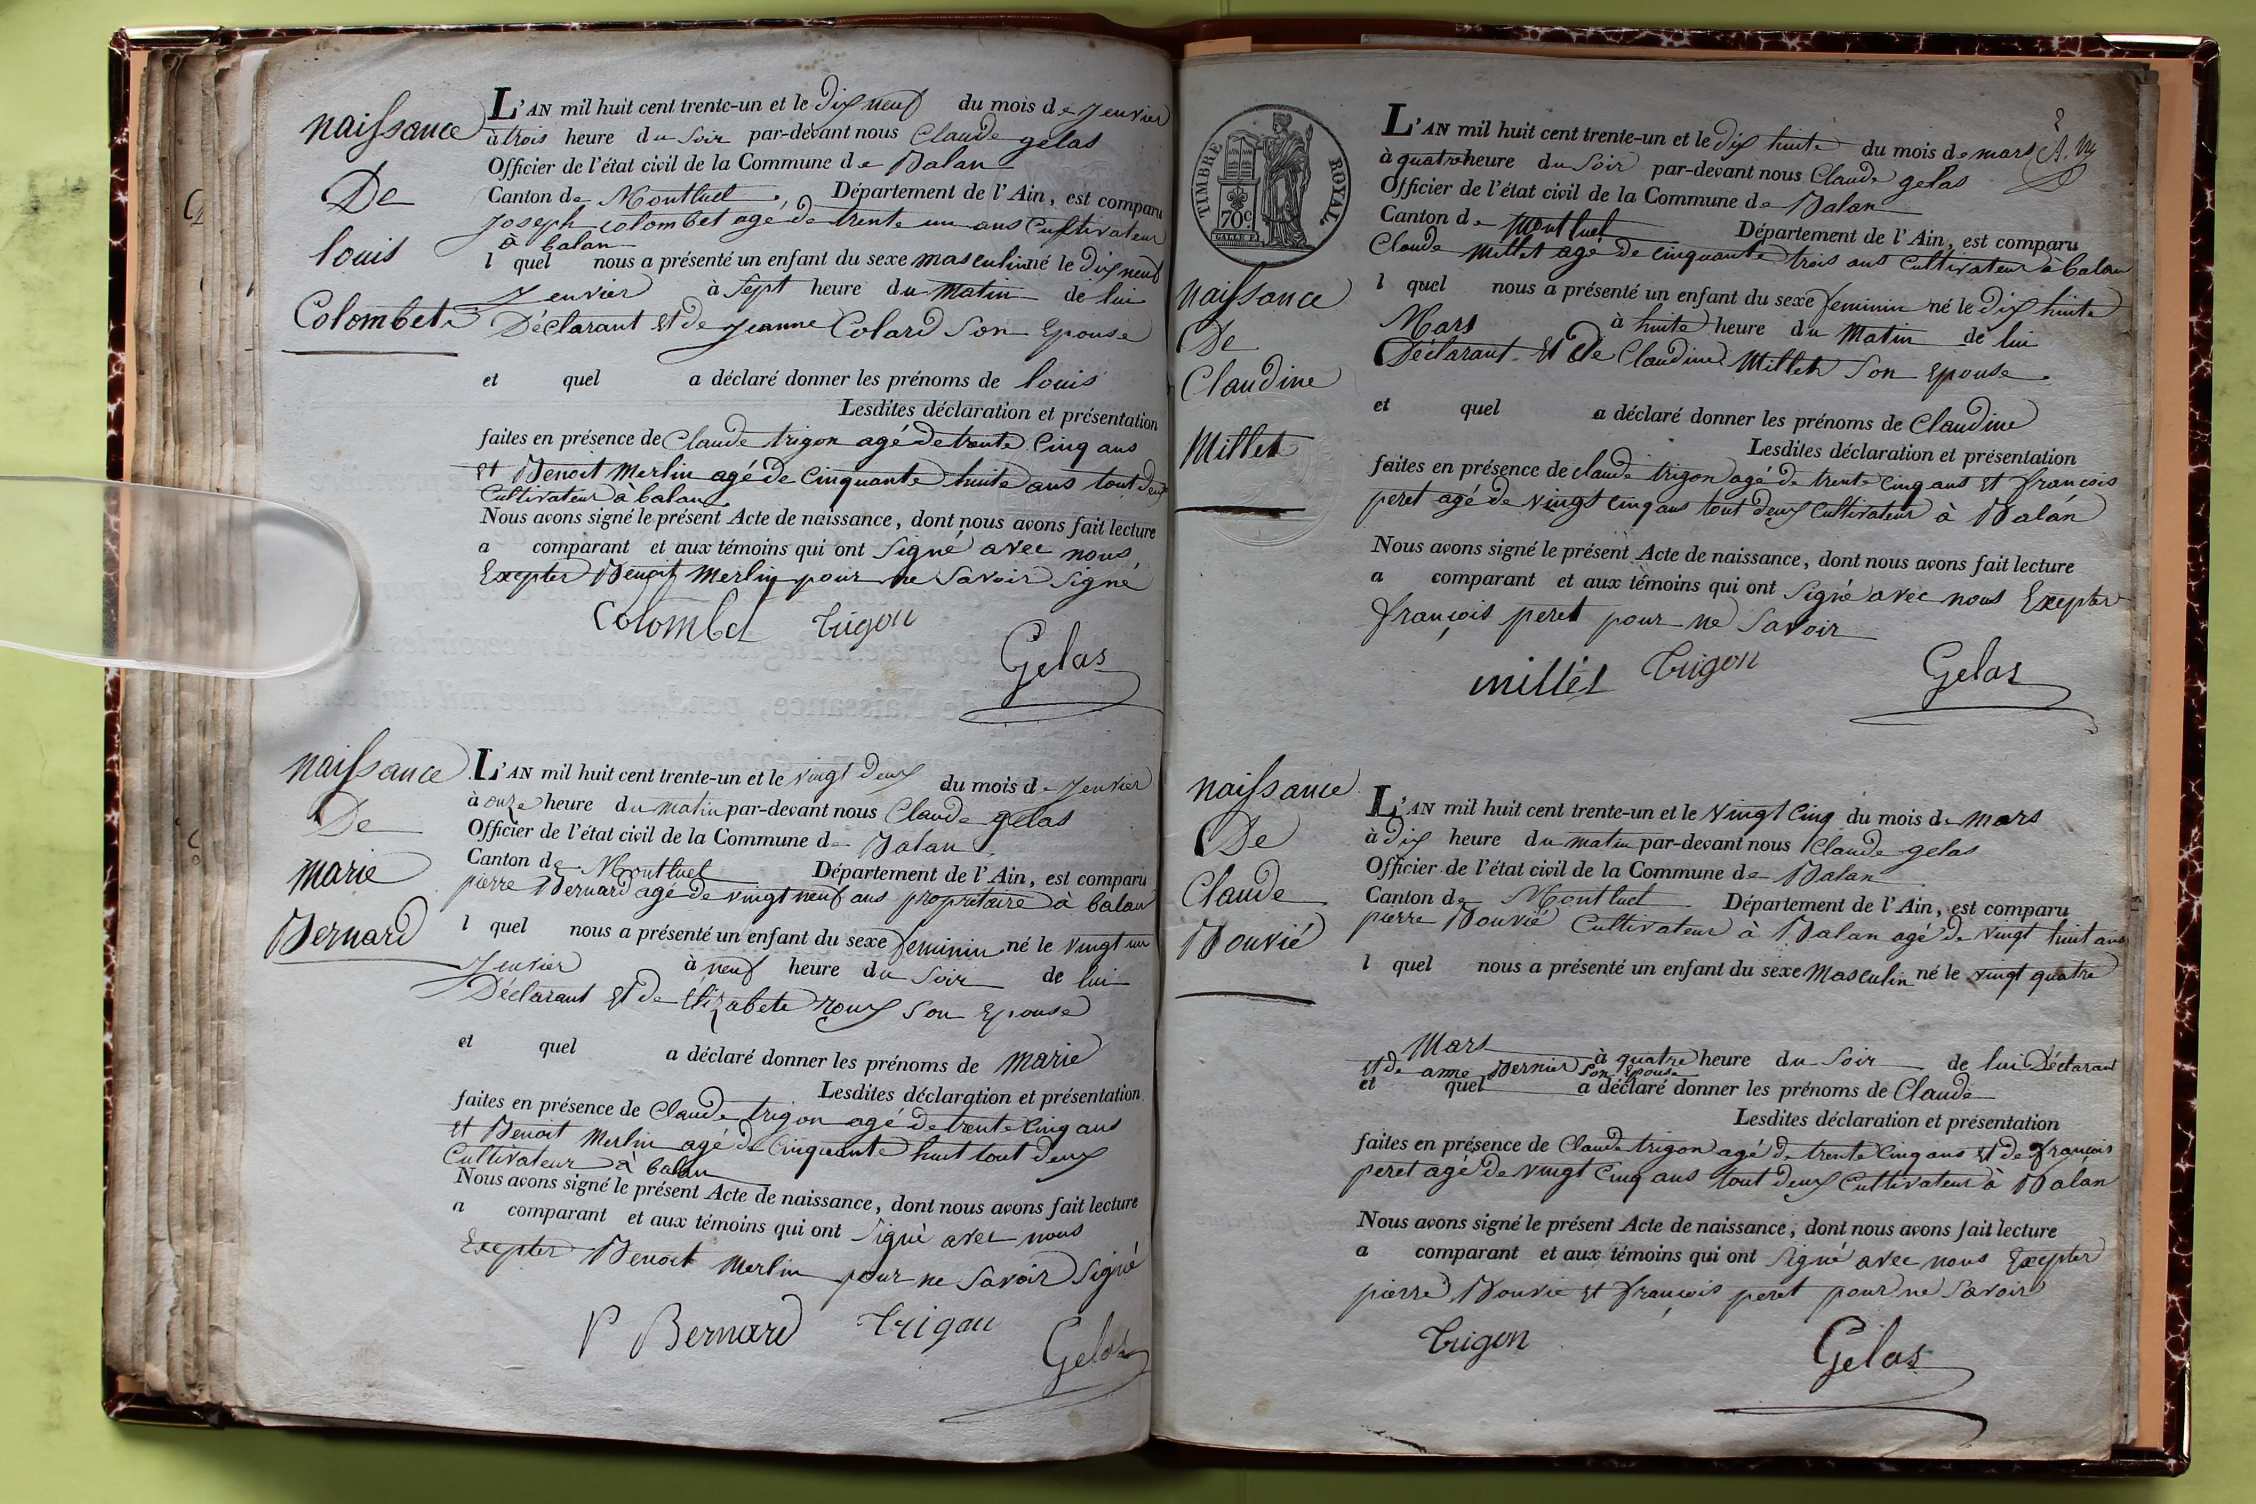 naissance
De
louis
Colombet
L'AN mil huit cent trente-un et le dix neuf du mois de Jenvier
à trois heure du Soir par-devant nous Claude gelas
Officier de l'état civil de la Commune de Balan
Canton de Montluel Département de l'Ain, est comparu
Joseph colombet agé de trente un ans Cultivateur
à balan
l quel nous a présenté un enfant du sexe masculin né le dix neuf
Jenvier à Sept heure du matin de lui
Déclarant Et de Jeanne Colard Son Epouse
et quel a déclaré donner les prénoms de louis
Lesdites déclaration et présentation
faites en présence de Claude trigon agé de trente Cinq ans
Et Benoit Merlin agé de Cinquante huite ans tout deux
Cultivateur a balan
Nous avons signé le présent Acte de naissance, dont nous avons fait lecture
a comparant et aux témoins qui ont Signé avec nous
Exepter Benoit Merlin pour ne Savoir Signé
Colombet trigon
Gelas
naissance
De
marie
Bernard
L'AN mil huit cent trente-un et le vingt deux du mois de Jenvier
à onze heure du matin par-devant nous Claude gelas
Officier de l'état civil de la Commune de Balan
Canton de Montluel Département de l'Ain, est comparu
pierre Bernard agé de vingt neuf ans propretaire à balan
l quel nous a présenté un enfant du sexe feminin né le vingt un
Jenvier à neuf heure du Soir de lui
Déclarant Et de Elizabete roux Son Epouse
et quel a déclaré donner les prénoms de marie
Lesdites déclaration et présentation
faites en présence de Claude trigon agé de trente Cinq ans
Et Benoit Merlin agé de Cinquante huit tout deux
Cultivateur à balan
Nous avons signé le présent Acte de naissance, dont nous avons fait lecture
a comparant et aux témoins qui ont Signé avec nous
Exepter Benoit Merlin pour ne Savoir Signé
P Bernard trigon
Gelas
TIMBRE ROYAL
70c
2
naissance
De
Claudine
Millet
L'AN mil huit cent trente-un et le dix huite du mois de mars
à quatre heure du Soir par-devant nous Claude gelas
Officier de l'état civil de la Commune de Balan
Canton de Montluel Département de l'Ain, est comparu
Claude Millet agé de cinquante trois ans Cultivateur à balan
l quel nous a présenté un enfant du sexe feminin né le dix huite
Mars à huite heure du Matin de lui
Déclarant Et de Claudine Millet Son Epouse
et quel a déclaré donner les prénoms de Claudine
Lesdites déclaration et présentation
faites en présence de claude trigon agé de trente cinq ans Et françois
peret agé de vingt cinq ans tout deux Cultivateur à Balan
Nous avons signé le présent Acte de naissance, dont nous avons fait lecture
a comparant et aux témoins qui ont Signé avec nous Exepter
françois peret pour ne Savoir
millet trigon
Gelas
naissance
De
Claude
Bouvié
L'AN mil huit cent trente-un et le vingt Cinq du mois de mars
à dix heure du matin par-devant nous Claude gelas
Officier de l'état civil de la Commune de Balan
Canton de Montluel Département de l'Ain, est comparu
pierre Bouvié Cultivateur à Balan agé de vingt huit ans
l quel nous a présenté un enfant du sexe Masculin né le vingt quatre
Mars à quatre heure du Soir de lui Déclarant
Et de anne Bernier Son Epouse
et quel a déclaré donner les prénoms de Claude
Lesdites déclaration et présentation
faites en présence de Claude trigon agé de trente Cinq ans Et de françois
peret agé de vingt Cinq ans tout deux Cultivateur à Balan
Nous avons signé le présent Acte de naissance, dont nous avons fait lecture
a comparant et aux témoins qui ont Signé avec nous Exepter
pierre Bouvie Et françois peret pour ne Savoir
trigon
Gelas